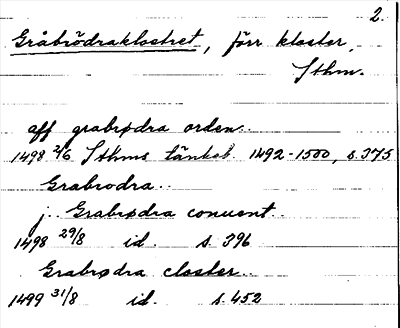 2.
Gråbrödraklostret, förr kloster,
Sthm.
aff grabrødra orden..
1498 2/6 Sthms tänkeb. 1492-1500, s. 375
Grabrodra..
j.. Grabrødra conuent..
1498 29/8 id. s. 396
Grabrødra closter..
1499 31/8 id. s. 452